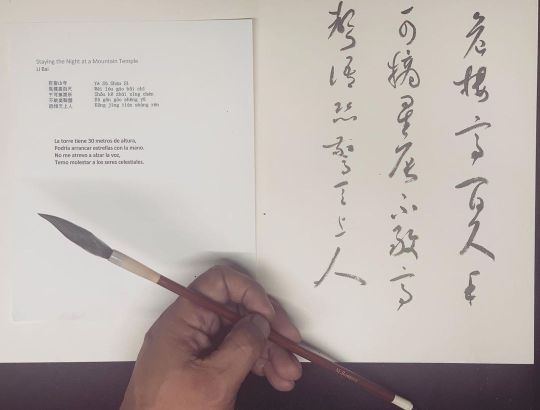 Staying the Night at a Mountain Temple
Li Bai
Yè Sù Shān Sì
Wēi lóu gāo bǎi chǐ
Shǒu kě zhāi xīng chén
Bù gǎn gāo shēng yǔ
Kǒng jīng tiān shàng rén
La torre tiene 30 metros de altura,
Podría arrancar estrellas con la mano.
No me atrevo a alzar la voz,
Temo molestar a los seres celestiales.
危楼高百尺手
可摘星辰不敢高
聲語恐驚天上人